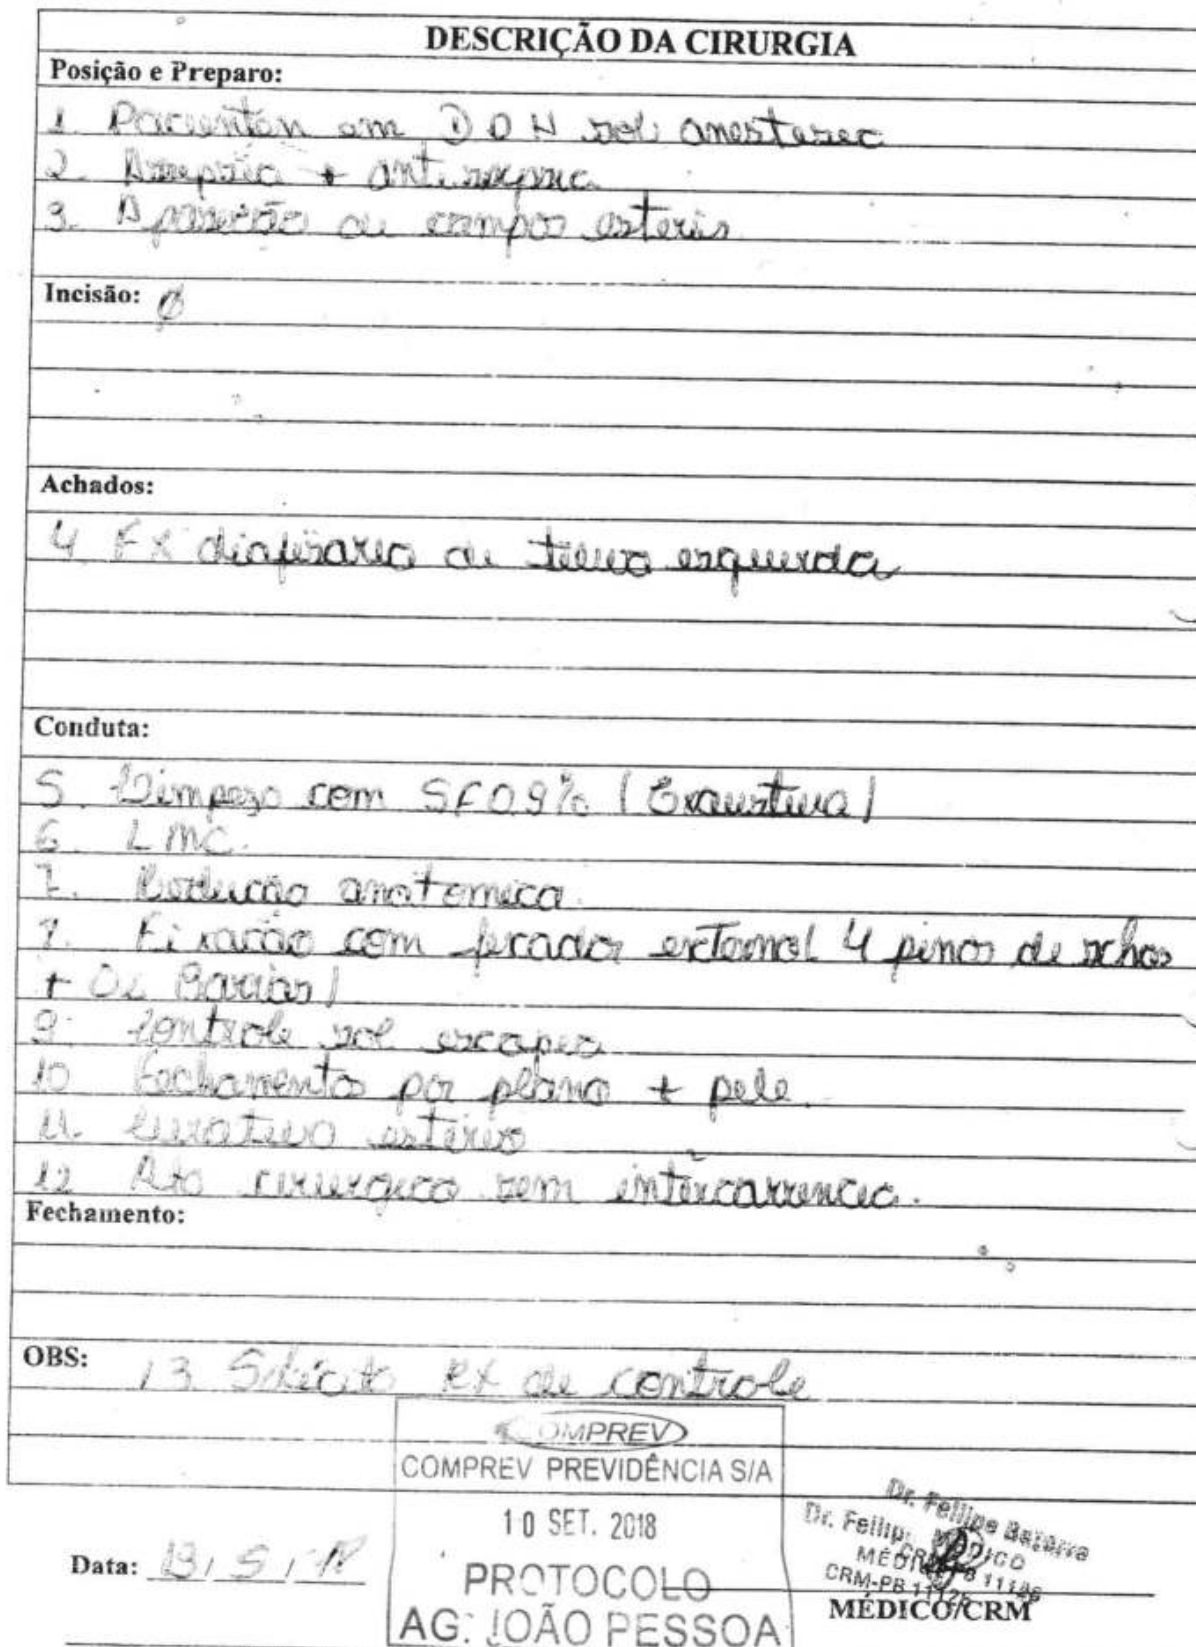 DESCRIÇÃO DA CIRURGIA
Posição e Preparo:
1. em D D H sob anestesec
2. Assepsia + antissepsia
3. Aposição de campos estéreis
Incisão: Ø
Achados:
4 FX diafisária de tíbia esquerda
Conduta:
5. Limpeza com SF 0.9% (Exaustiva)
6. L M C.
7. Redução anatomica.
7. Fixação com fixador externo ( 4 pinos de
+ 02 Barras)
9. Controle sob escopia
10 Fechamento por plano + pele.
11. Curativo estéril
12 Ato cirurgico sem intercorrencia.
Fechamento:
OBS: 13 Solicito RX de controle
COMPREV
COMPREV PREVIDÊNCIA S/A
10 SET. 2018
PROTOCOLO
AG. JOÃO PESSOA
Dr. Fellipe
MÉDICO
CRM-PB
Data: 13 / 5 / 18
MÉDICO/CRM